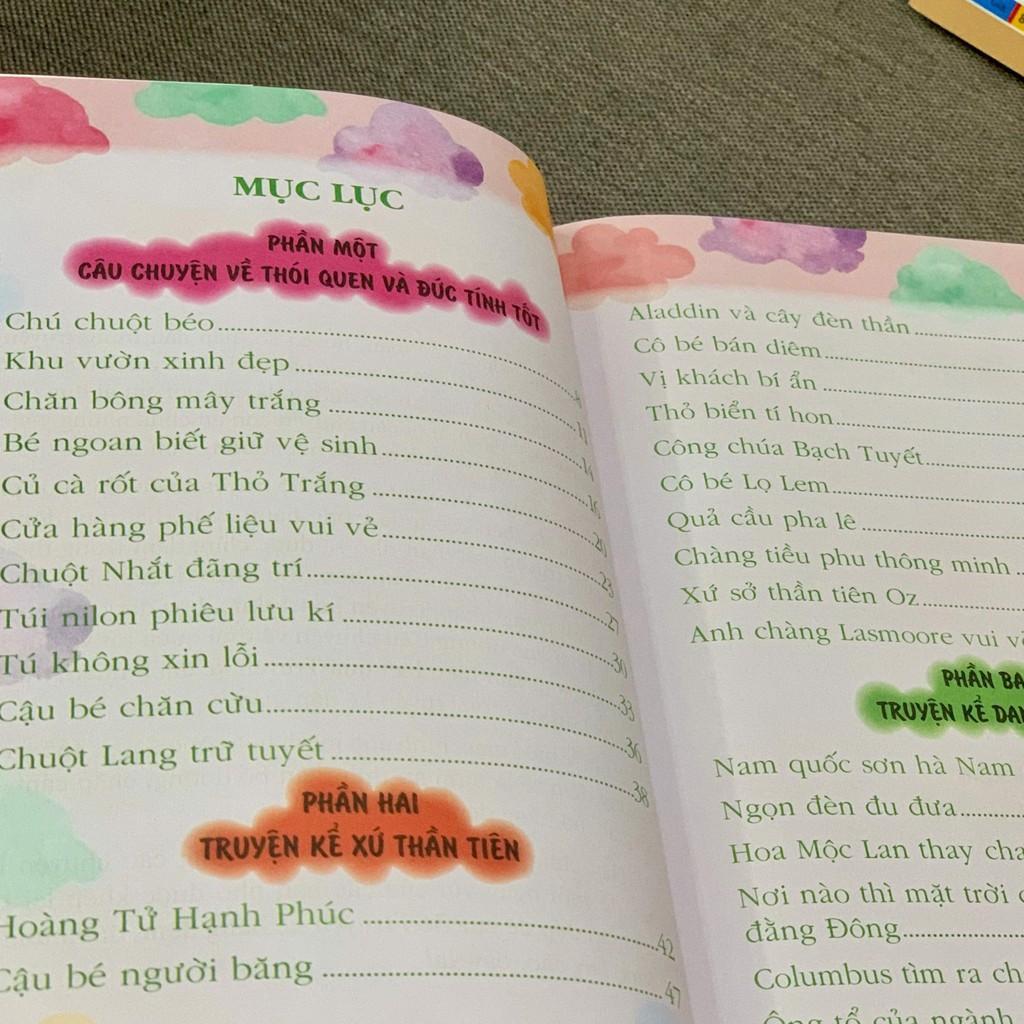 MỤC LỤC
PHẦN MỘT
CÂU CHUYỆN VỀ THÓI QUEN VÀ ĐỨC TÍNH TỐT
Chú chuột béo
Khu vườn xinh đẹp 11
Chăn bông mây trắng 14
Bé ngoan biết giữ vệ sinh 16
Củ cà rốt của Thỏ Trắng 20
Cửa hàng phế liệu vui vẻ 23
Chuột Nhắt đãng trí 27
Túi nilon phiêu lưu kí 30
Tú không xin lỗi 33
Cậu bé chăn cừu 36
Chuột Lang trữ tuyết 38
PHẦN HAI
TRUYỆN KỂ XỨ THẦN TIÊN
Hoàng Tử Hạnh Phúc 42
Cậu bé người băng 47
Aladdin và cây đèn thần
Cô bé bán diêm
Vị khách bí ẩn
Thỏ biển tí hon
Công chúa Bạch Tuyết
Cô bé Lọ Lem
Quả cầu pha lê
Chàng tiều phu thông minh
Xứ sở thần tiên Oz
Anh chàng Lasmoore vui
PHẦN BA
TRUYỆN KỂ
Nam quốc sơn hà Nam
Ngọn đèn đu đưa
Hoa Mộc Lan thay cha
Nơi nào thì mặt trời
đằng Đông
Columbus tìm ra
Ông tổ của ngành